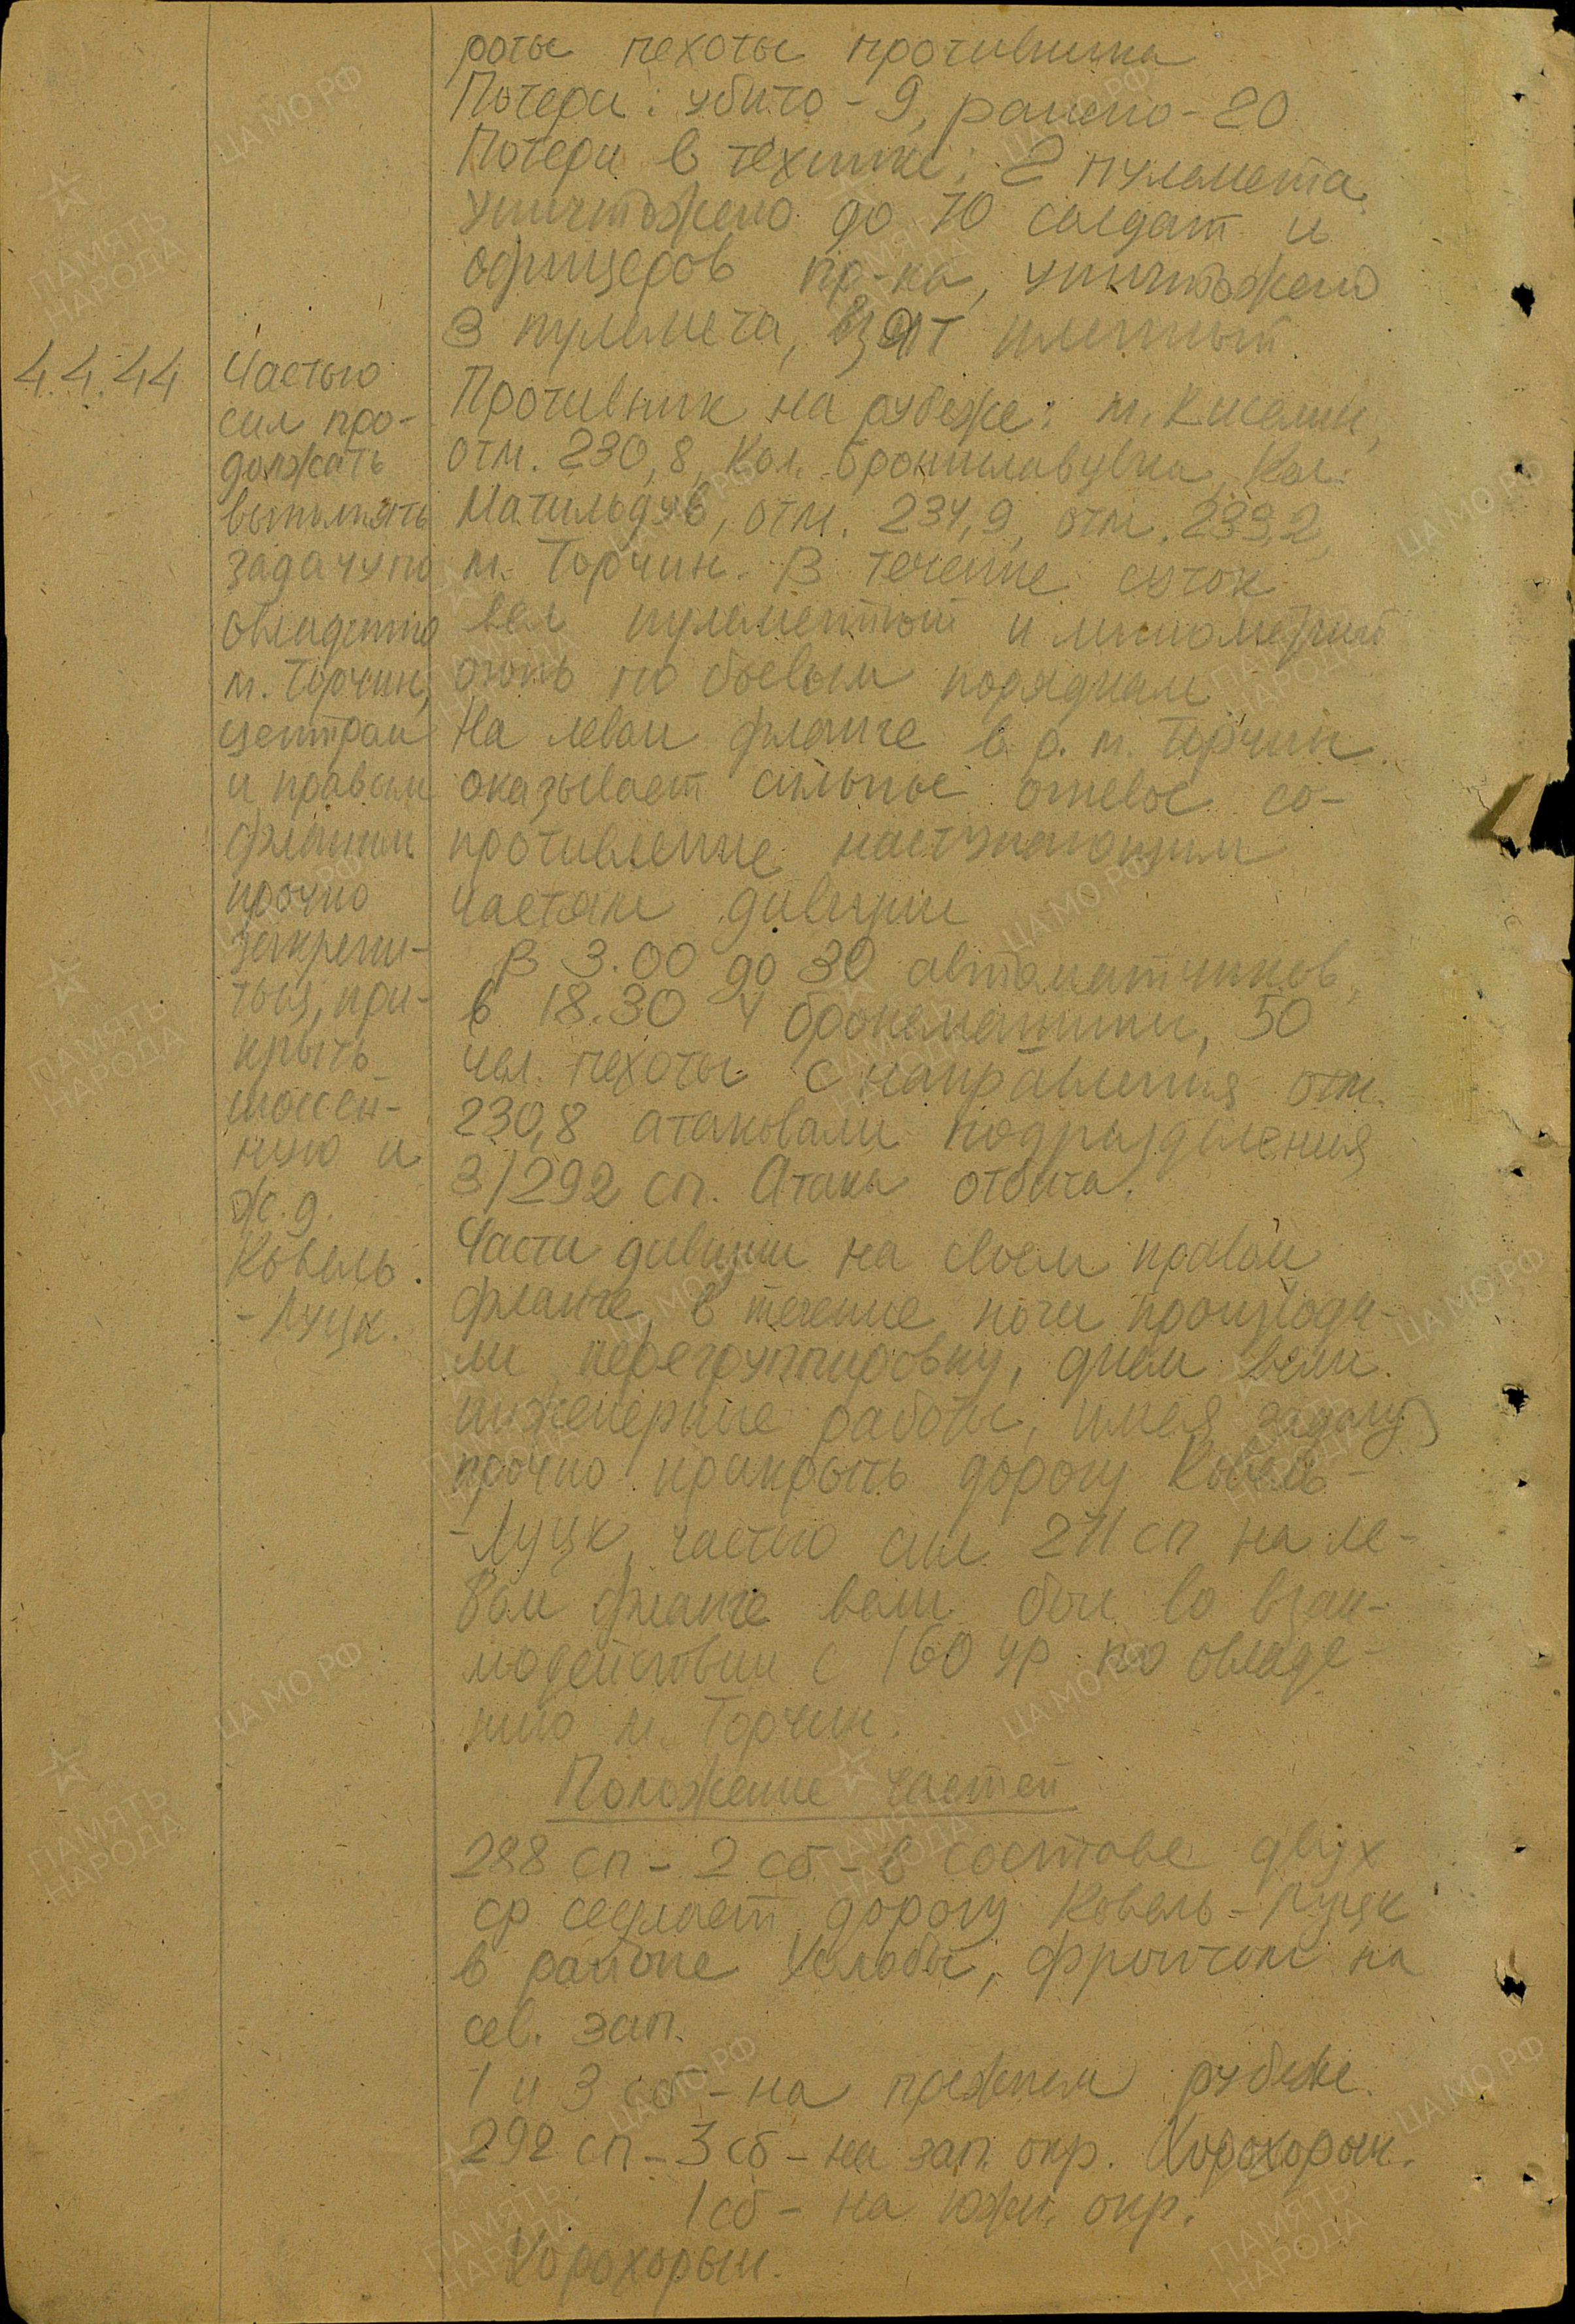 роты пехоты противника
Потери: убито - 9, ранено - 20
Потери в технике: 2 пулемета.
Уничтожено до 70 солдат и
офицеров пр-ка, уничтожено
3 пулемета, взят пленный.
4.4.44
Частью
сил про-
должать
выполнять
задачу по
овладению
м. Торчин,
центром
и правым
флангом
прочно
закрепи-
ться, при-
крыть
шоссей-
ную и
ж.д.
Ковель
- Луцк.
Противник на рубеже: м. Киселин,
отм. 230,8, Кол. Брониславувка, Кол.
Матильдув, отм. 234,9, отм. 239,2,
м. Торчин. В течение суток
вел пулеметный и минометный
огонь по боевым порядкам.
На левом фланге в р. м. Торчин
оказывает сильное огневое со-
противление наступающим
частям дивизии
В 3.00 до 30 автоматчиков,
в 18.30 4 бронемашины, 50
чел. пехоты с направления отм.
230,8 атаковали подразделения
3/292 сп. Атака отбита.
Части дивизии на своем правом
фланге в течение ночи производи-
ли перегруппировку, днем вели
инженерные работы, имея задачу
прочно прикрыть дорогу Ковель-
- Луцк, частью сил 211 сп на ле-
вом фланге вели бои во взаи-
модействии с 160 ур по овладе-
нию м. Торчин.
Положение частей
288 сп - 2 сб - в составе двух
ср седлает дорогу Ковель - Луцк
в районе Холобы, фронтом на
сев. зап.
1 и 3 сб - на прежнем рубеже.
292 сп - 3 сб - на зап. окр. Хорохорын.
1 сб - на южн. окр.
Хорохорын.
ЦА МО РФ
ПАМЯТЬ
НАРОДА